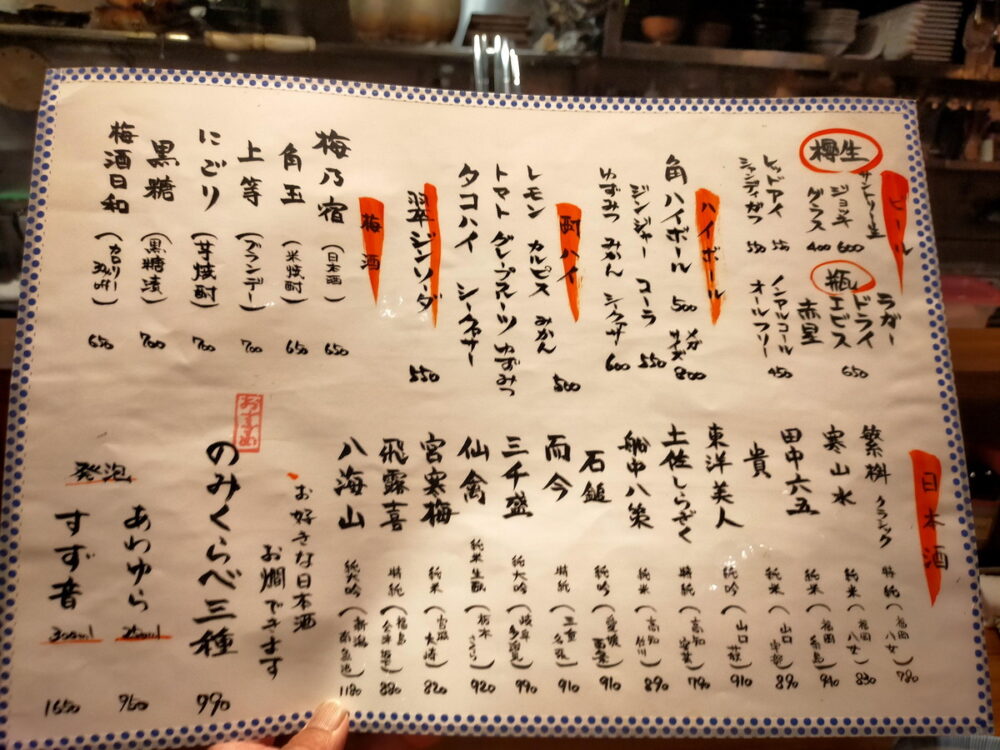 ビール
樽生
サントリー生
ジョッキ 600
グラス 400
レッドアイ 550
シャンディガフ 550
瓶
ラガー
ドライ
エビス 650
赤星
ノンアルコール
オールフリー 450
ハイボール
角ハイボール 500 メガサイズ 800
ジンジャー コーラ 550
ゆずみつ みかん シークヮサー 600
酎ハイ
レモン カルピス みかん 500
トマト グレープフルーツ ゆずみつ
タコハイ シークヮサー
翠ジンソーダ 550
梅酒
梅乃宿 (日本酒) 650
角玉 (米焼酎) 650
上等 (ブランデー) 700
にごり (芋焼酎) 700
黒糖 (黒糖漬) 700
梅酒日和 (カロリー off) 650
日本酒
繁桝 クラシック 特純 (福岡 八女) 780
寒山水 純米 (福岡 八女) 830
田中六五 純米 (福岡 糸島) 940
貴 純米 (山口 宇部) 890
東洋美人 純吟 (山口 萩) 910
土佐しらぎく 特純 (高知 安芸) 790
船中八策 純米 (高知 佐川) 890
石鎚 純吟 (愛媛 西条) 910
而今 特純 (三重 名張) 910
三千盛 純大吟 (岐阜 多治見) 990
仙禽 純米生酛 (栃木 さくら) 920
宮寒梅 純米 (宮城 大崎) 820
飛露喜 特純 (福島 会津坂下) 880
八海山 純大吟 (新潟 南魚沼) 1180
お好きな日本酒
お燗できます
おすすめ
のみくらべ三種 990
発泡
あわゆら 250ml 950
すず音 300ml 1650